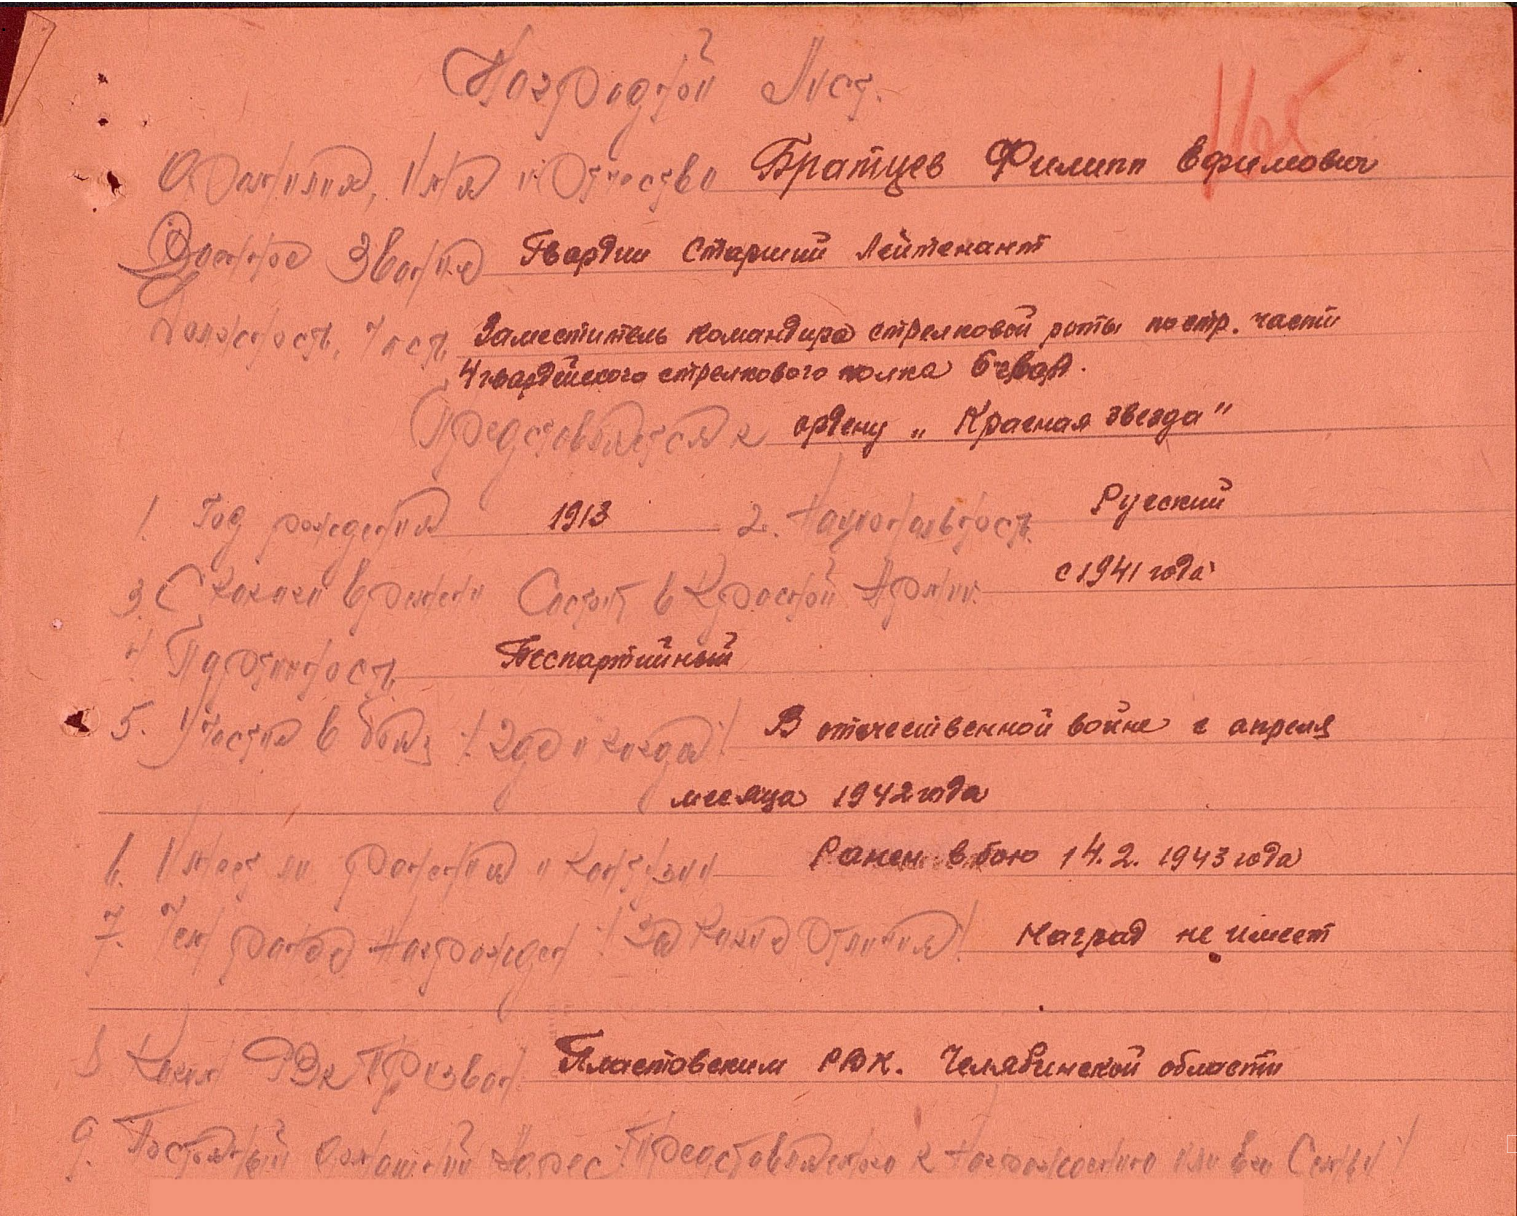 Наградной Лист.
Фамилия, Имя и Отчество Братцев Филипп Ефимович
Военное Звание Гвардии Старший Лейтенант
Должность, Часть Заместитель командира стрелковой роты по стр. части
4 гвардейского стрелкового полка 6 гвсд.
Представляется к ордену „Красная звезда"
1. Год рождения 1913 2. Национальность Русский
3. С какого времени Состоит в Красной Армии. с 1941 года
4. Партийность Беспартийный
5. Участие в боях /где и когда/ В отечественной войне с апреля
месяца 1942 года
6. Имеет ли ранения и контузии Ранен в бою 14.2.1943 года
7. Чем ранее награжден /За какие отличия/ Наград не имеет
8 Каким РВК призван Пластовским РВК. Челябинской области
9. Постоянный домашний Адрес /Представляемого к награждению или его Семьи/